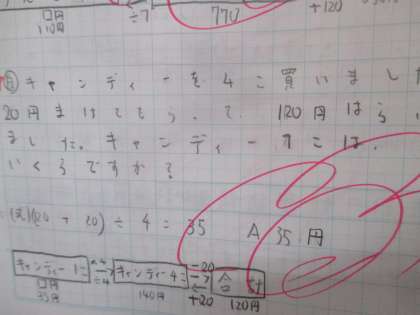 □円
110円
÷7
770
+120
キャンディーを4こ買いました
20円まけてもらって、120円はらい
ました。キャンディー1こは、
いくらですか?
(式)(120+20)÷4=35 A 35円
キャンディー1こ ×4→ ←÷4 キャンディー4こ −20→ ←+20 合計
□円
35円
140円
120円